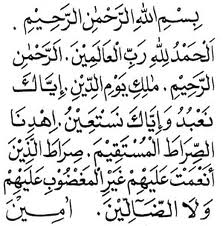 بِسْمِ اللهِ الرَّحْمٰنِ الرَّحِيْمِ .
اَلْحَمْدُ لِلّٰهِ رَبِّ الْعَالَمِيْنَ . الرَّحْمٰنِ
الرَّحِيْمِ . مٰلِكِ يَوْمِ الدِّيْنِ . اِيَّاكَ
نَعْبُدُ وَاِيَّاكَ نَسْتَعِيْنُ . اِهْدِنَا
الصِّرَاطَ الْمُسْتَقِيْمَ . صِرَاطَ الَّذِيْنَ
اَنْعَمْتَ عَلَيْهِمْ غَيْرِ الْمَغْضُوْبِ عَلَيْهِمْ
وَلَا الضَّالِّيْنَ . اٰمِيْنَ